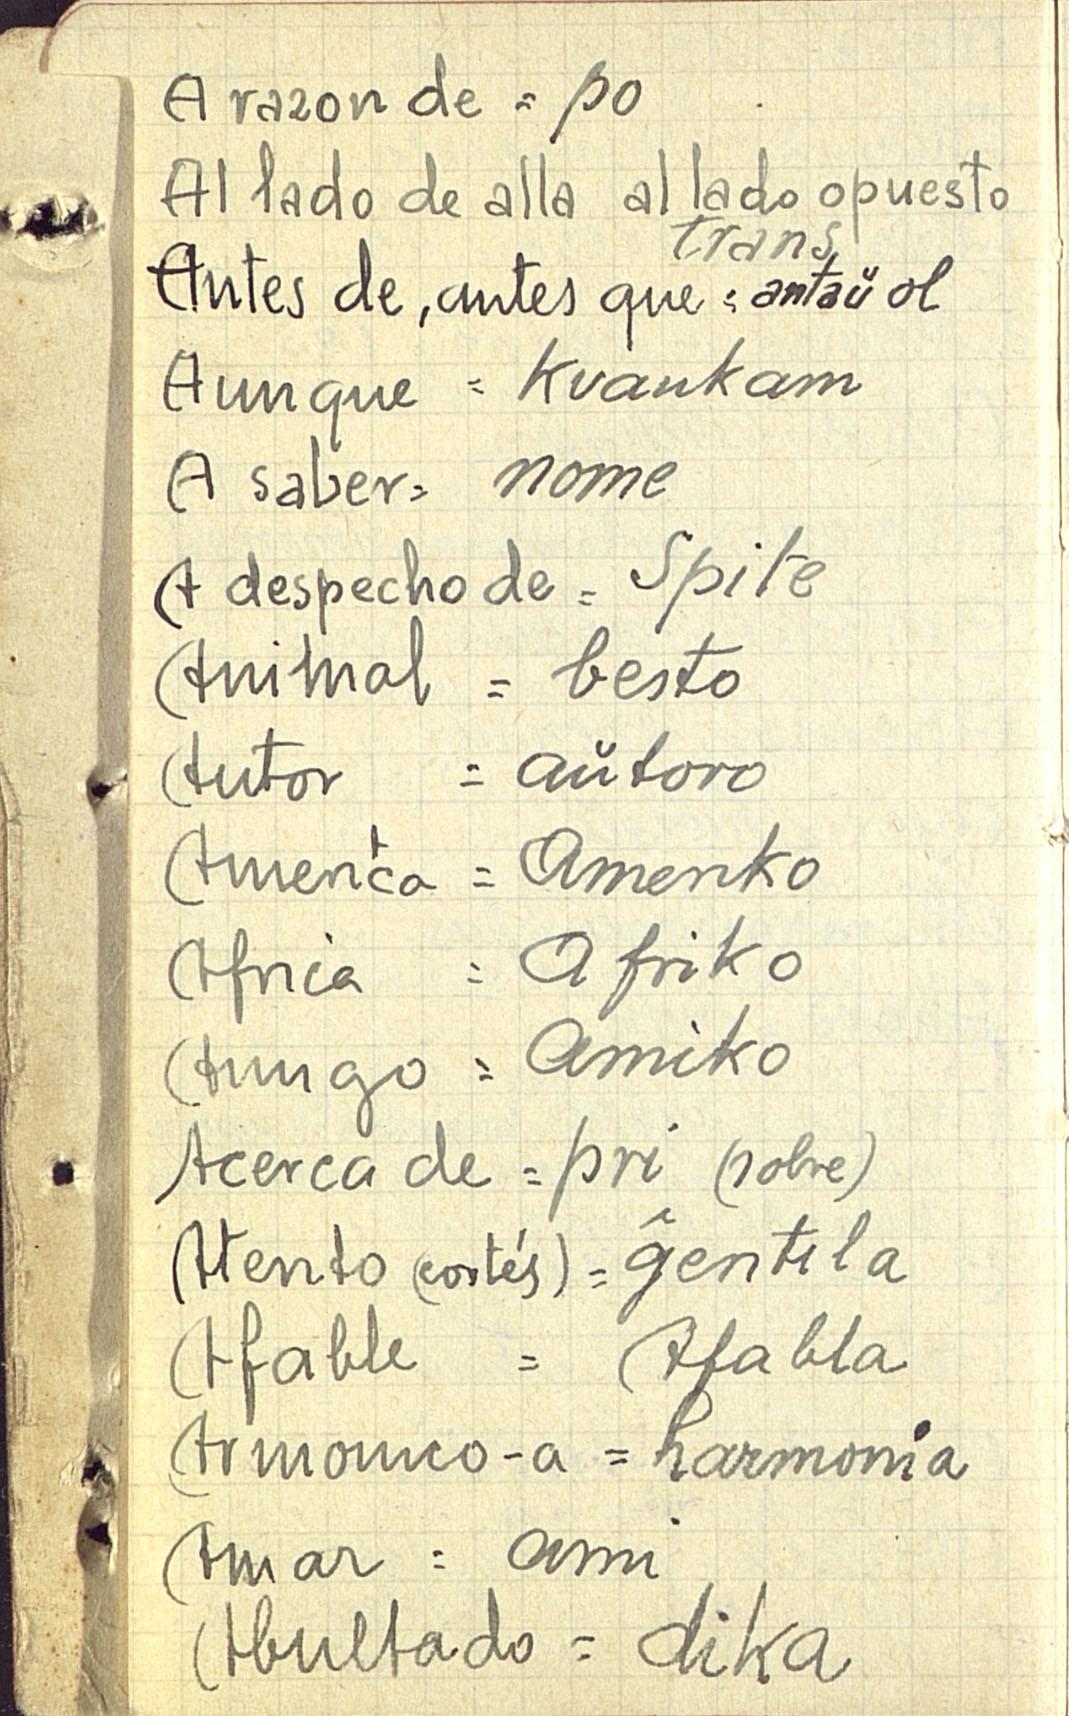 A razon de = po
Al lado de alla al lado opuesto
trans
Antes de, antes que = antaŭ ol
Aunque = Kvankam
A saber = nome
A despecho de = Spite
Animal = besto
Autor = aŭtoro
America = Ameriko
Africa = Afriko
Amigo = Amiko
Acerca de = pri (sobre)
Atento (cortés) = ĝentila
Afable = Afabla
Armonico-a = harmonia
Amar = ami
Abultado = dika